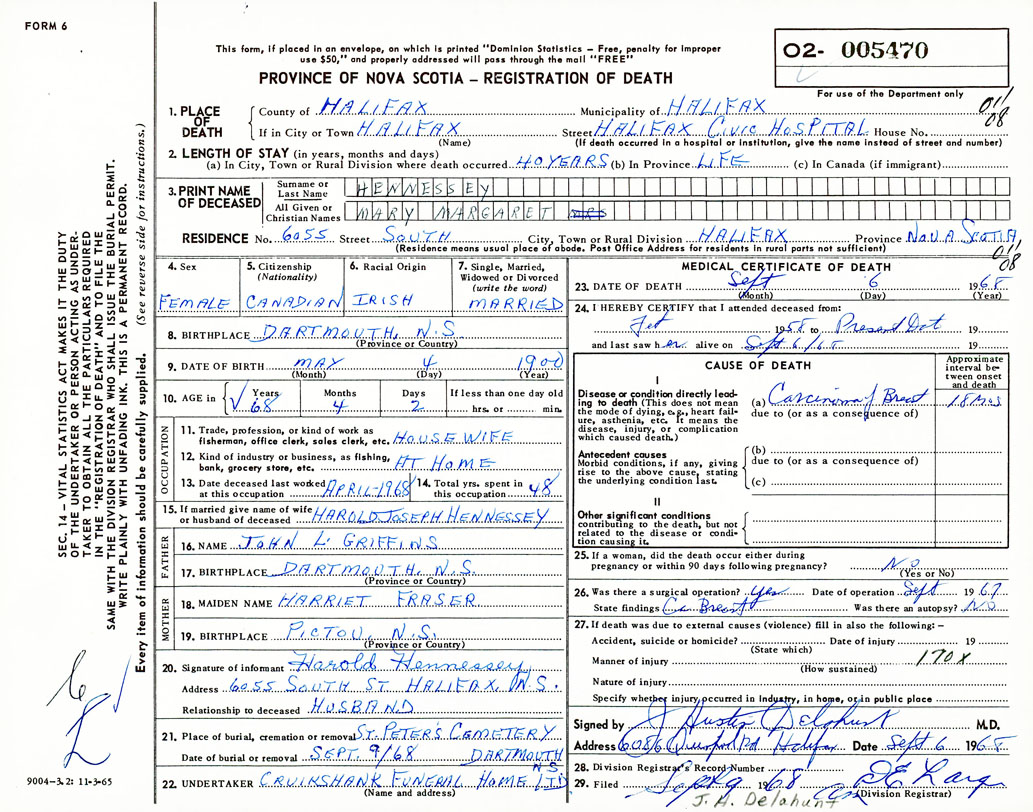 FORM 6
This form, if placed in an envelope, on which is printed "Dominion Statistics – Free, penalty for improper
use $50," and properly addressed will pass through the mail "FREE"
O2- 005470
PROVINCE OF NOVA SCOTIA – REGISTRATION OF DEATH
For use of the Department only
011
08
1. PLACE OF DEATH
County of HALIFAX Municipality of HALIFAX
If in City or Town HALIFAX Street HALIFAX CIVIC HOSPITAL House No.
(Name) (If death occurred in a hospital or institution, give the name instead of street and number)
2. LENGTH OF STAY (in years, months and days)
(a) In City, Town or Rural Division where death occurred 40 YEARS (b) In Province LIFE (c) In Canada (if immigrant)
3. PRINT NAME OF DECEASED
Surname or Last Name HENNESSEY
All Given or Christian Names MARY MARGARET MRS
RESIDENCE No. 6055 Street SOUTH City, Town or Rural Division HALIFAX Province NOVA SCOTIA
(Residence means usual place of abode. Post Office Address for residents in rural parts not sufficient)
011
08
4. Sex
FEMALE
5. Citizenship (Nationality)
CANADIAN
6. Racial Origin
IRISH
7. Single, Married, Widowed or Divorced (write the word)
MARRIED
8. BIRTHPLACE DARTMOUTH, N.S.
(Province or Country)
9. DATE OF BIRTH MAY 4 1900
(Month) (Day) (Year)
10. AGE in Years Months Days If less than one day old
68 4 2 hrs. or min.
OCCUPATION
11. Trade, profession, or kind of work as
fisherman, office clerk, sales clerk, etc. HOUSEWIFE
12. Kind of industry or business, as fishing,
bank, grocery store, etc. AT HOME
13. Date deceased last worked
at this occupation APRIL-1968
14. Total yrs. spent in
this occupation 48
15. If married give name of wife
or husband of deceased HAROLD JOSEPH HENNESSEY
FATHER
16. NAME JOHN L. GRIFFINS
17. BIRTHPLACE DARTMOUTH, N.S.
(Province or Country)
MOTHER
18. MAIDEN NAME HARRIET FRASER
19. BIRTHPLACE PICTOU, N.S.
(Province or Country)
20. Signature of informant Harold Hennessey
Address 6055 SOUTH ST. HALIFAX, N.S.
Relationship to deceased HUSBAND
21. Place of burial, cremation or removal ST. PETER'S CEMETERY
Date of burial or removal SEPT. 9/68 DARTMOUTH
N S
22. UNDERTAKER CRUIKSHANK FUNERAL HOME LTD
(Name and address)
MEDICAL CERTIFICATE OF DEATH
23. DATE OF DEATH Sept 6 1968
(Month) (Day) (Year)
24. I HEREBY CERTIFY that I attended deceased from:
1958 to Present Dat 19
and last saw her alive on Sept 6/68 19
CAUSE OF DEATH
Approximate interval between onset and death
I
Disease or condition directly leading to death (This does not mean
the mode of dying, e.g., heart failure, asthenia, etc. It means the
disease, injury, or complication
which caused death.)
(a) Carcinoma of Breast 18 Mos
due to (or as a consequence of)
Antecedent causes
Morbid conditions, if any, giving
rise to the above cause, stating
the underlying condition last.
(b)
due to (or as a consequence of)
(c)
II
Other significant conditions
contributing to the death, but not
related to the disease or condition causing it.
25. If a woman, did the death occur either during
pregnancy or within 90 days following pregnancy? No
(Yes or No)
26. Was there a surgical operation? Yes Date of operation Sept 1967
State findings Ca Breast Was there an autopsy? No
27. If death was due to external causes (violence) fill in also the following: –
Accident, suicide or homicide? Date of injury 19
(State which)
Manner of injury 170X
(How sustained)
Nature of injury
Specify whether injury occurred in Industry, in home, or in public place
Signed by J Austin Delahunt M.D.
Address Halifax Date Sept 6 1968
28. Division Registrar's Record Number
29. Filed Sept 9 1968
(Division Registrar)
J. A. Delahunt
SEC. 14 – VITAL STATISTICS ACT MAKES IT THE DUTY
OF THE UNDERTAKER OR PERSON ACTING AS UNDERTAKER TO OBTAIN ALL THE PARTICULARS REQUIRED
IN THE "REGISTRATION OF DEATH" AND TO FILE THE
SAME WITH THE DIVISION REGISTRAR WHO SHALL ISSUE THE BURIAL PERMIT.
WRITE PLAINLY WITH UNFADING INK. THIS IS A PERMANENT RECORD.
Every item of information should be carefully supplied. (See reverse side for instructions.)
9004-3.2: 11-3-65